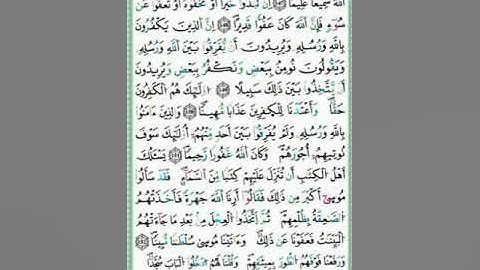 اللَّهُ سَمِيعًا عَلِيمًا ﴿١٤٨﴾ إِن تُبْدُوا خَيْرًا أَوْ تُخْفُوهُ أَوْ تَعْفُوا عَن
سُوءٍ فَإِنَّ اللَّهَ كَانَ عَفُوًّا قَدِيرًا ﴿١٤٩﴾ إِنَّ الَّذِينَ يَكْفُرُونَ
بِاللَّهِ وَرُسُلِهِ وَيُرِيدُونَ أَن يُفَرِّقُوا بَيْنَ اللَّهِ وَرُسُلِهِ
وَيَقُولُونَ نُؤْمِنُ بِبَعْضٍ وَنَكْفُرُ بِبَعْضٍ وَيُرِيدُونَ
أَن يَتَّخِذُوا بَيْنَ ذَٰلِكَ سَبِيلًا ﴿١٥٠﴾ أُولَٰئِكَ هُمُ الْكَافِرُونَ
حَقًّا وَأَعْتَدْنَا لِلْكَافِرِينَ عَذَابًا مُّهِينًا ﴿١٥١﴾ وَالَّذِينَ آمَنُوا
بِاللَّهِ وَرُسُلِهِ وَلَمْ يُفَرِّقُوا بَيْنَ أَحَدٍ مِّنْهُمْ أُولَٰئِكَ سَوْفَ
نُؤْتِيهِمْ أُجُورَهُمْ وَكَانَ اللَّهُ غَفُورًا رَّحِيمًا ﴿١٥٢﴾ يَسْأَلُكَ
أَهْلُ الْكِتَابِ أَن تُنَزِّلَ عَلَيْهِمْ كِتَابًا مِّنَ السَّمَاءِ فَقَدْ سَأَلُوا
مُوسَىٰ أَكْبَرَ مِن ذَٰلِكَ فَقَالُوا أَرِنَا اللَّهَ جَهْرَةً فَأَخَذَتْهُمُ
الصَّاعِقَةُ بِظُلْمِهِمْ ثُمَّ اتَّخَذُوا الْعِجْلَ مِن بَعْدِ مَا جَاءَتْهُمُ
الْبَيِّنَاتُ فَعَفَوْنَا عَن ذَٰلِكَ وَآتَيْنَا مُوسَىٰ سُلْطَانًا مُّبِينًا ﴿١٥٣﴾
وَرَفَعْنَا فَوْقَهُمُ الطُّورَ بِمِيثَاقِهِمْ وَقُلْنَا لَهُمُ ادْخُلُوا الْبَابَ سُجَّدًا